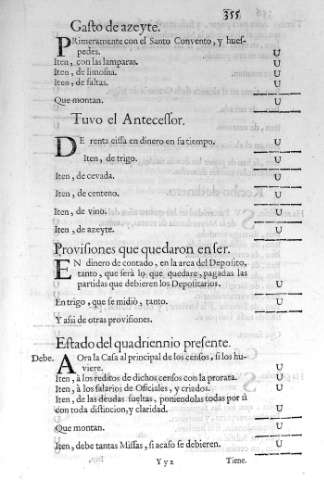 355.
Gasto de azeyte.
PRimeramente con el Santo Convento, y hues-
pedes. U
Iten, con las lamparas. U
Iten, de limosna. U
Iten, de faltas. U
Que montan. U
Tuvo el Antecessor.
DE renta eissa en dinero en su tiempo. U
Iten, de trigo. U
Iten, de cevada. U
Iten, de centeno. U
Iten, de vino. U
Iten, de azeyte. U
Provisiones que quedaron en ser.
EN dinero de contado, en la arca del Deposito,
tanto, que serà lo que quedare, pagadas las
partidas que debieren los Depositarios. U
En trigo, que se midiò, tanto. U
Y assi de otras provisiones.
Estado del quadriennio presente.
Debe. AOra la Casa al principal de los censos, si los hu-
viere. U
Iten, à los reditos de dichos censos con la prorata. U
Iten, à los salarios de Oficiales, y criados. U
Iten, de las deudas sueltas, poniendolas todas por sì
con toda distincion, y claridad. U
Que montan. U
Iten, debe tantas Missas, si acaso se debieren. U
Yy2 Tiene.